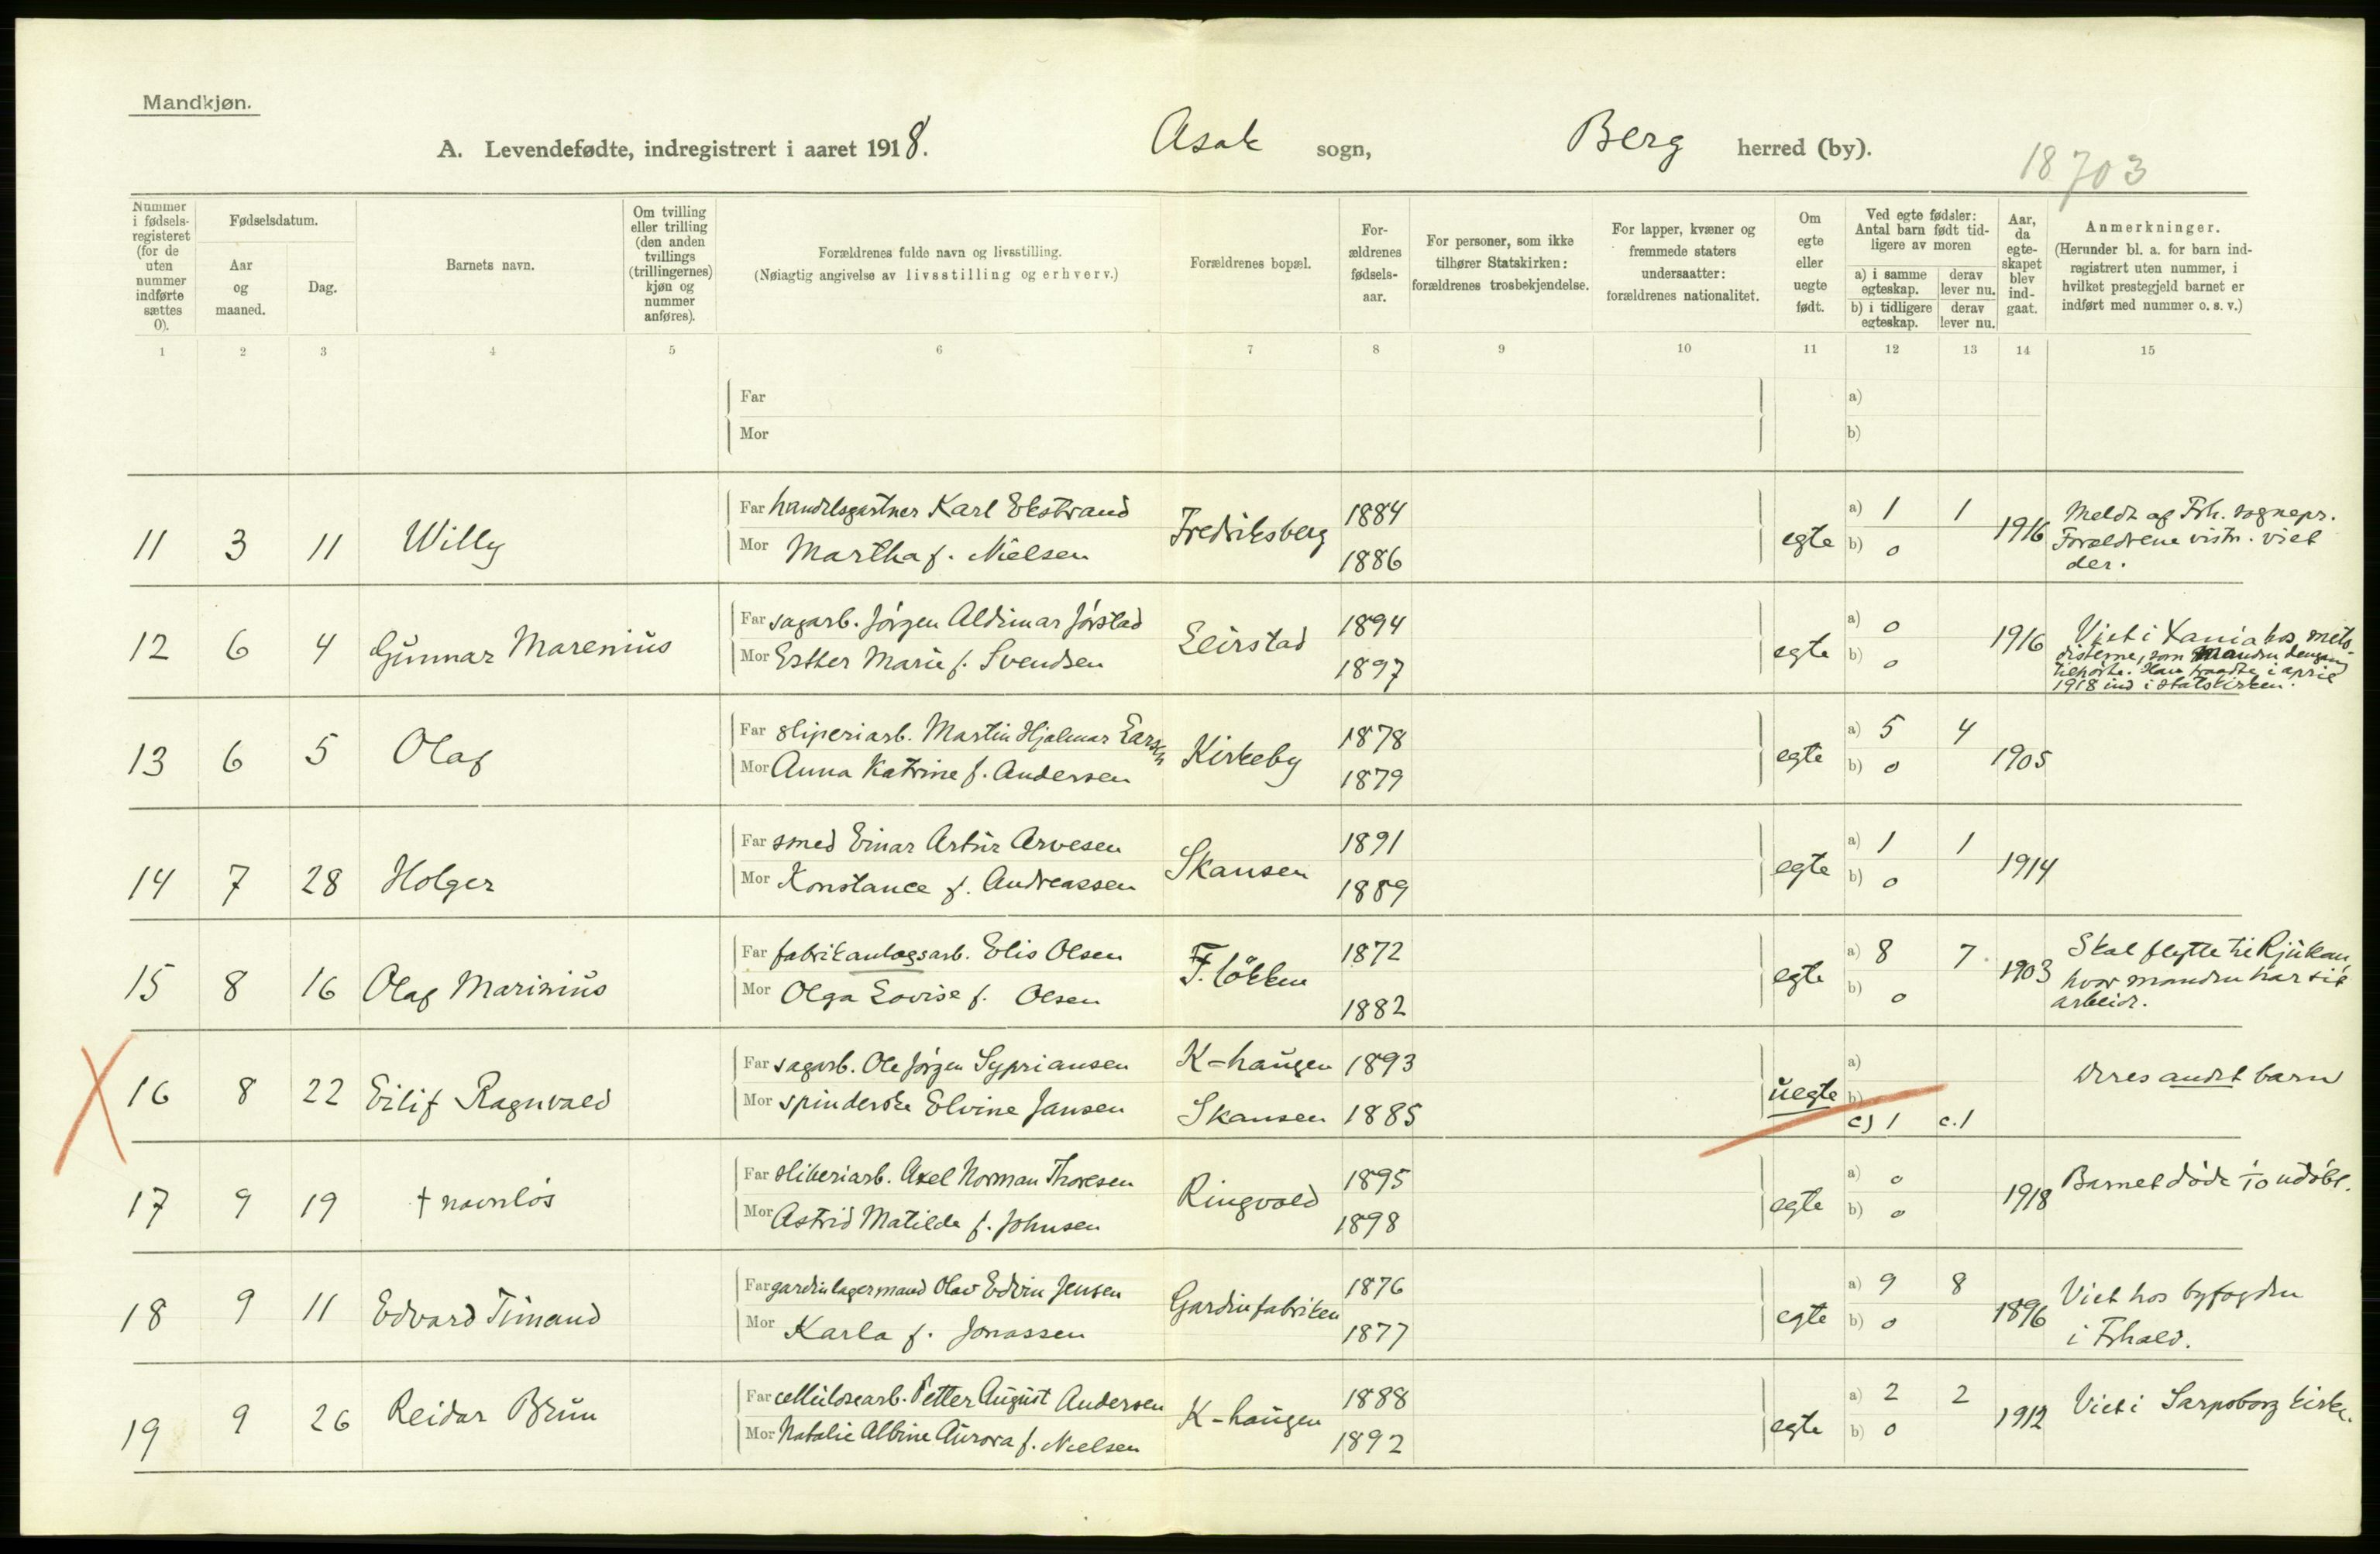 Mandkjøn.
A. Levendefødte, indregistrert i aaret 1918. Asak sogn, Berg herred (by).
18703
Nummer i fødsels-registeret (for de uten nummer indførte sættes 0).
Fødselsdatum.
Aar og maaned.
Dag.
Barnets navn.
Om tvilling eller trilling (den anden tvillings (trillingernes) kjøn og nummer anføres).
Forældrenes fulde navn og livsstilling.
(Nøiagtig angivelse av livsstilling og erhverv.)
Forældrenes bopæl.
For-ældrenes fødsels-aar.
For personer, som ikke tilhører Statskirken: forældrenes trosbekjendelse.
For lapper, kvæner og fremmede staters undersaatter: forældrenes nationalitet.
Om egte eller uegte født.
Ved egte fødsler: Antal barn født tid-ligere av moren
a) i samme egteskap. derav lever nu.
b) i tidligere egteskap. derav lever nu.
Aar, da egte-skapet blev ind-gaat.
Anmerkninger.
(Herunder bl. a. for barn ind-registrert uten nummer, i hvilket prestegjeld barnet er indført med nummer o. s. v.)
1 2 3 4 5 6 7 8 9 10 11 12 13 14 15
Far a)
Mor b)
Far handelsgartner Karl Ekstrand 1884 a) 1 1 Meldt af Frh. sognepr.
11 3 11 Willy Fredriksberg egte 1916 Forældrene vistn. viet
Mor Martha f. Nielsen 1886 b) 0 der.
Far sagarb. Jörgen Aldimar Jörstad 1894 a) 0 Viet i Xania hos meto-
12 6 4 Gunnar Marenius Leirstad egte 1916 disterne, som manden dengang
Mor Esther Marie f. Svendsen 1897 b) 0 tilhörte. Han traadte i april
1918 ind i statskirken.
Far sliperiarb. Martin Hjalmar Larsen 1878 a) 5 4
13 6 5 Olaf Kirkeby egte 1905
Mor Anna Katrine f. Andersen 1879 b) 0
Far smed Einar Artur Arvesen 1891 a) 1 1
14 7 28 Holger Skansen egte 1914
Mor Konstance f. Andreassen 1889 b) 0
Far fabrikanlagsarb. Elis Olsen 1872 a) 8 7 Skal flytte til Rjukan,
15 8 16 Olaf Marinius F. lökken egte 1903 hvor manden har sit
Mor Olga Lovise f. Olsen 1882 b) 0 arbeide.
Far sagarb. Ole Jörgen Sypriansen K-haugen 1893 a)
16 8 22 Eilif Ragnvald uegte b) Deres andet barn
Mor spinderske Elvine Jansen Skansen 1885 c) 1 c. 1
Far sliberiarb. Axel Norman Thoresen 1895 a) 0
17 9 19 † navnlös Ringvold egte 1918 Barnet döde 1/10 udöbt.
Mor Astrid Matilde f. Johnsen 1898 b) 0
Far gardinlagermand Olav Edvin Jensen 1876 a) 9 8 Viet hos byfogden
18 9 11 Edvard Timand Gardinfabriken egte 1896
Mor Karla f. Jonassen 1877 b) 0 i Frhald.
Far cellulosearb. Petter August Andersen 1888 a) 2 2
19 9 26 Reidar Brun K-haugen egte 1912 Viet i Sarpsborg kirke.
Mor Natalie Albine Aurora f. Nielsen 1892 b) 0